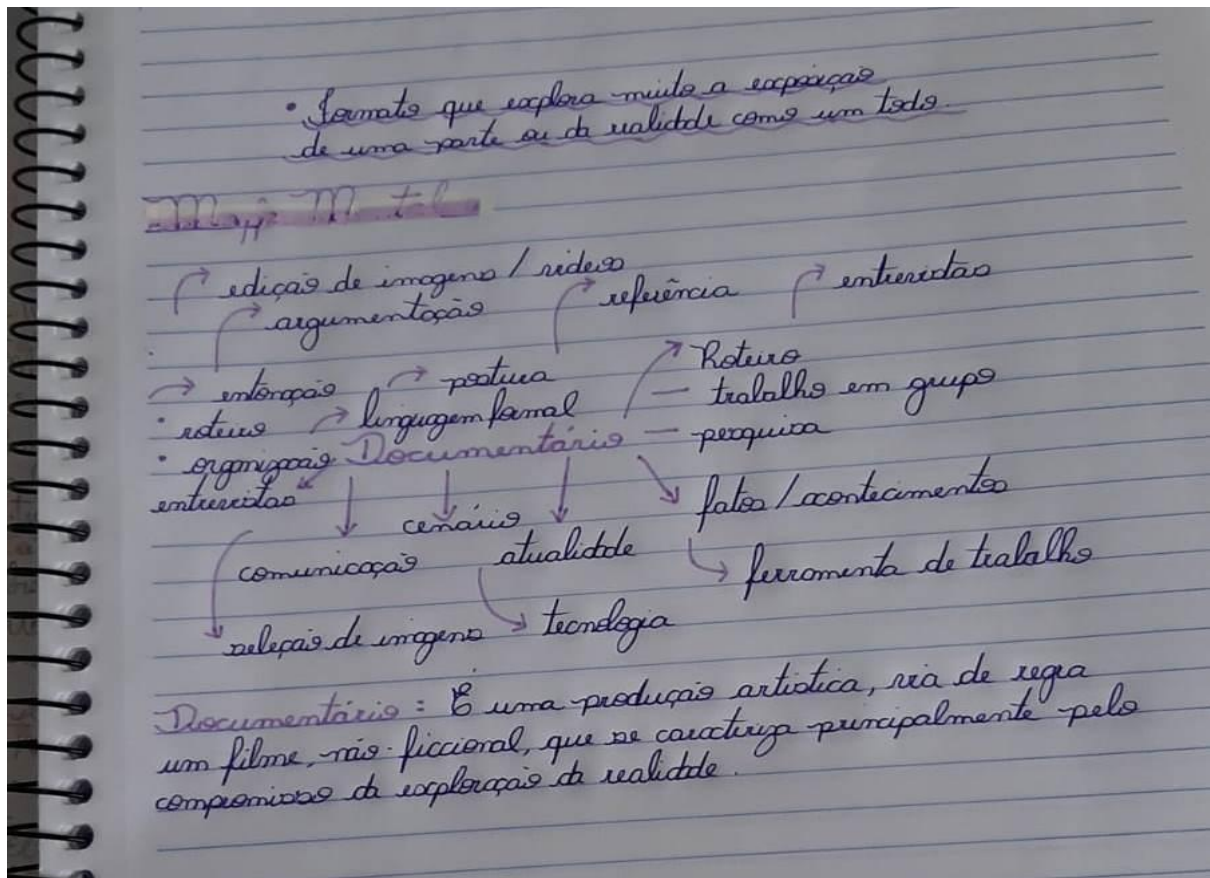 • Formato que explora muito a exposição
de uma parte ou da realidade como um todo.
Mapa Mental
edição de imagens / vídeos
argumentação
referência
entrevistas
entonação
postura
Roteiro
• roteiro
linguagem formal
— trabalho em grupo
• organização
Documentário — pesquisa
entrevistas
cenário
fatos / acontecimentos
comunicação
atualidade
ferramenta de trabalho
seleção de imagens
tecnologia
Documentário: É uma produção artística, via de regra
um filme, não-ficcional, que se caracteriza principalmente pelo
compromisso da exploração da realidade.